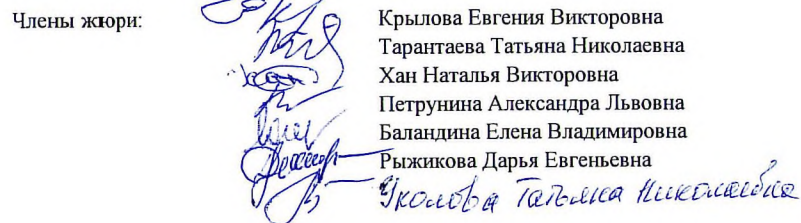 Члены жюри:
Крылова Евгения Викторовна
Тарантаева Татьяна Николаевна
Хан Наталья Викторовна
Петрунина Александра Львовна
Баландина Елена Владимировна
Рыжикова Дарья Евгеньевна
Уколова Татьяна Николаевна